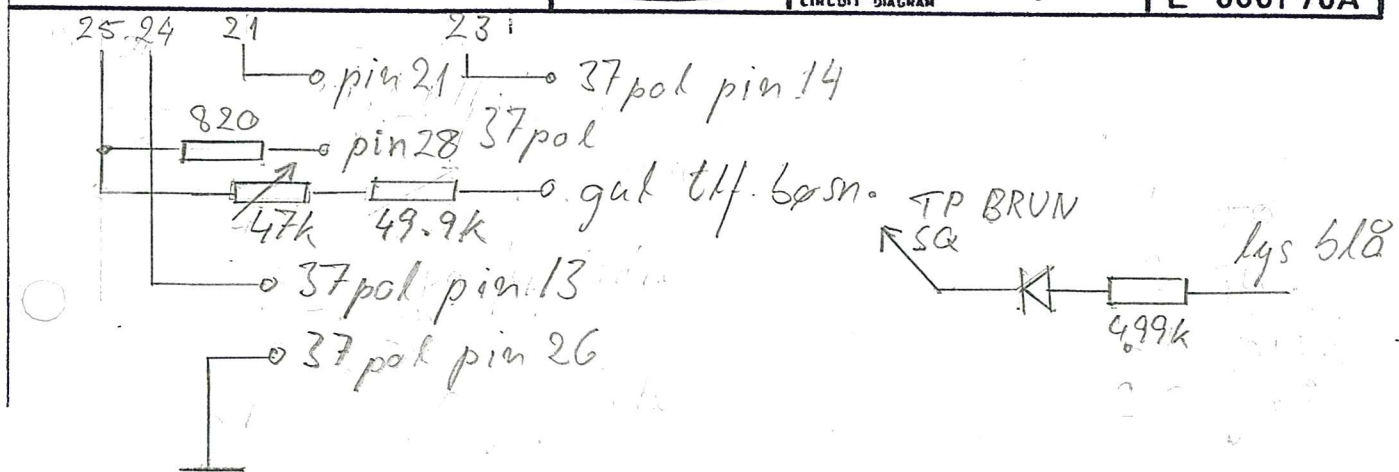 CIRCUIT DIAGRAM
25 24 21 23
pin 21
37 pol pin 14
820
pin 28 37 pol
47k 49.9k
gul tlf. bøsn.
TP BRUN
SQ
lys blå
4.99k
37 pol pin 13
37 pol pin 26